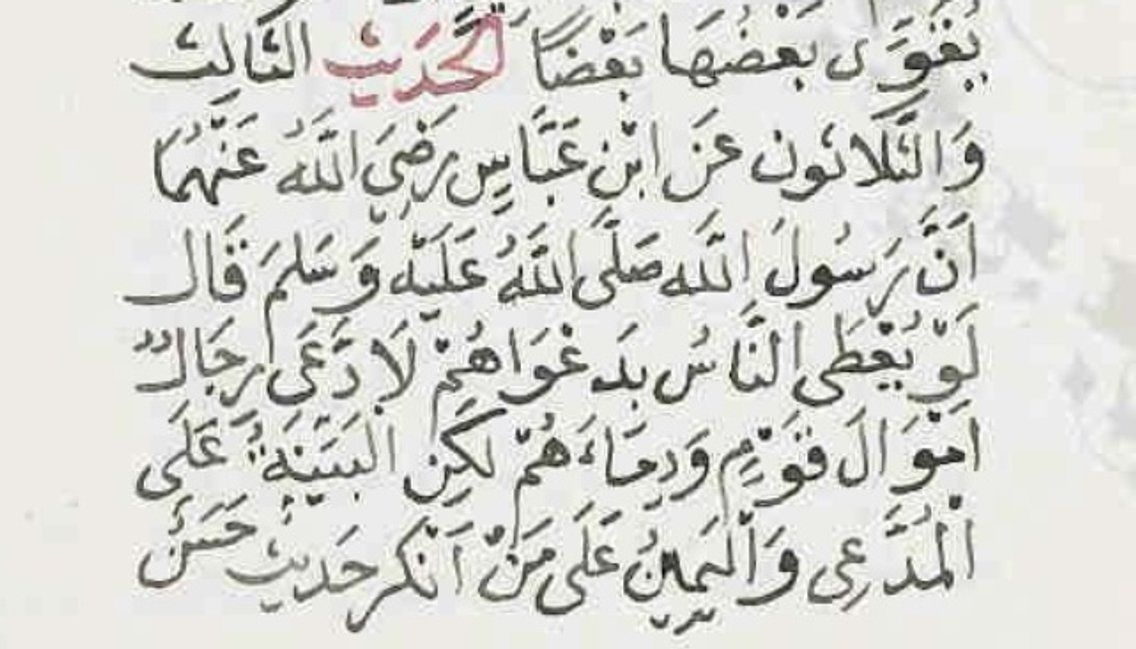 يُقَوِّى بَعْضُهَا بَعْضًا الحَدَيِث الثَالِث
وَالثَّلَاثون عَن ابْنِ عَبَّاسٍ رَضِيَ اللَّهُ عَنْهُمَا
اَنَّ رَسُولَ اللَّه صَلَّى اللَّهُ عَلَيْه وَسَلمَ قَال
لَوْ يُعْطَى النَّاسُ بدَعْوَاهُمْ لَادَّعَى رِجَالٌ
امْوَالَ قَوْمٍ وَدِمَاءَهُمْ لَكِن البَيَنَةُ عَلَى
الْمُدَّعِى وَالْيَمِينُ عَلَى مَنْ اَنْكر حَديث حَسَن